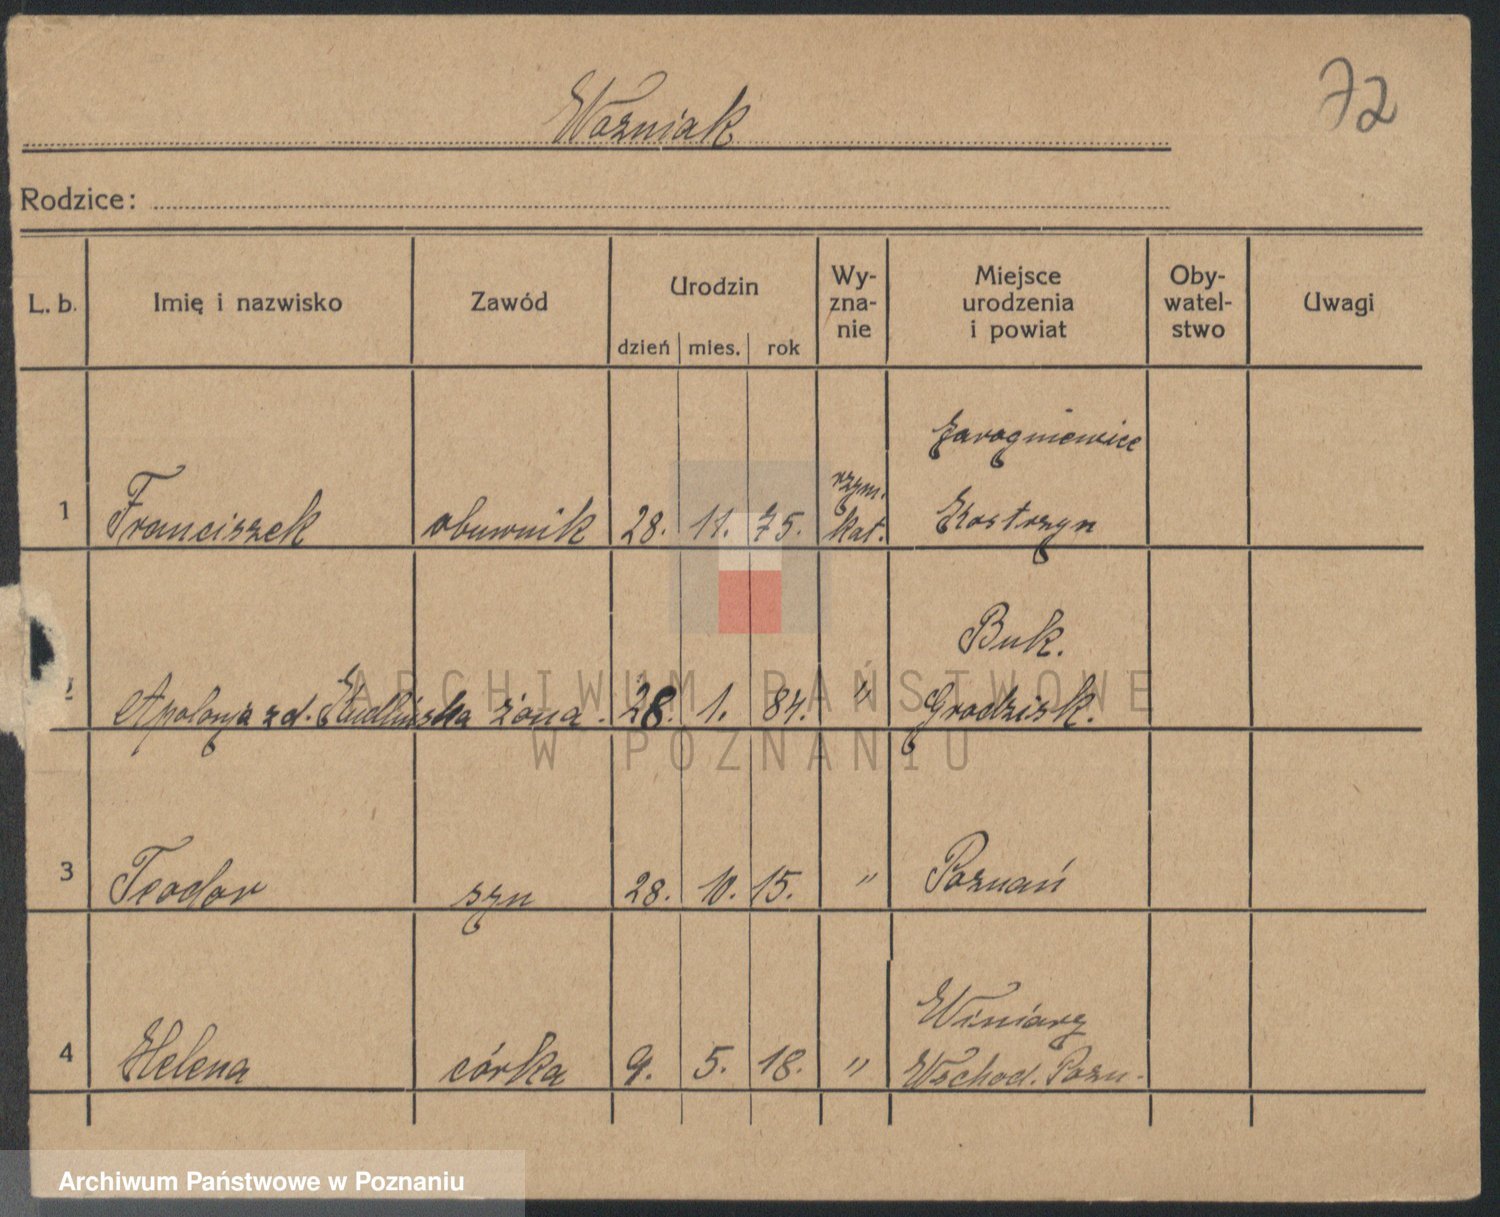 72
Woźniak
Rodzice:
L. b. Imię i nazwisko Zawód Urodzin dzień mies. rok Wy-zna-nie Miejsce urodzenia i powiat Oby-watel-stwo Uwagi
1 Franciszek obuwnik 28. 11. 75. rzym. kat. Kostrzyn
2 Apolonja z d. żona. 28. 1. 84. " Buk. Grodzisk.
3 Teodor syn 28. 10. 15. " Poznań
4 Helena córka 9. 5. 18. " Winiary Wschod. Pozn.
ARCHIWUM PAŃSTWOWE
W POZNANIU
Archiwum Państwowe w Poznaniu